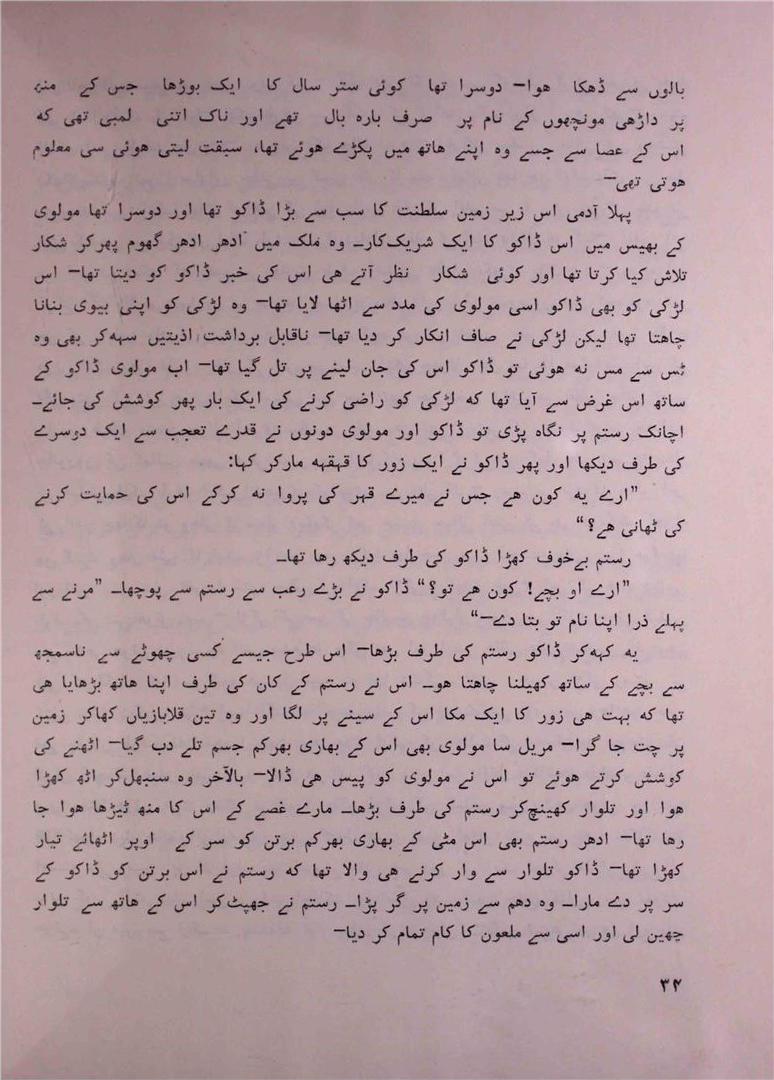 بالوں سے ڈھکا ہوا— دوسرا تھا کوئی ستر سال کا ایک بوڑھا جس کے منہ
پر داڑھی مونچھوں کے نام پر صرف بارہ بال تھے اور ناک اتنی لمبی تھی کہ
اس کے عصا سے جسے وہ اپنے ہاتھ میں پکڑے ہوئے تھا، سبقت لیتی ہوئی سی معلوم
ہوتی تھی—
پہلا آدمی اس زیر زمین سلطنت کا سب سے بڑا ڈاکو تھا اور دوسرا تھا مولوی
کے بھیس میں اس ڈاکو کا ایک شریک‌کار۔ وہ ملک میں ادھر ادھر گھوم پھر کر شکار
تلاش کیا کرتا تھا اور کوئی شکار نظر آتے ہی اس کی خبر ڈاکو کو دیتا تھا— اس
لڑکی کو بھی ڈاکو اسی مولوی کی مدد سے اٹھا لایا تھا— وہ لڑکی کو اپنی بیوی بنانا
چاہتا تھا لیکن لڑکی نے صاف انکار کر دیا تھا— ناقابل برداشت اذیتیں سہہ کر بھی وہ
ٹس سے مس نہ ہوئی تو ڈاکو اس کی جان لینے پر تل گیا تھا— اب مولوی ڈاکو کے
ساتھ اس غرض سے آیا تھا کہ لڑکی کو راضی کرنے کی ایک بار پھر کوشش کی جائے۔
اچانک رستم پر نگاہ پڑی تو ڈاکو اور مولوی دونوں نے قدرے تعجب سے ایک دوسرے
کی طرف دیکھا اور پھر ڈاکو نے ایک زور کا قہقہہ مار کر کہا:
”ارے یہ کون ہے جس نے میرے قہر کی پروا نہ کرکے اس کی حمایت کرنے
کی ٹھانی ہے؟“
رستم بے‌خوف کھڑا ڈاکو کی طرف دیکھ رہا تھا۔
”ارے او بچے! کون ہے تو؟“ ڈاکو نے بڑے رعب سے رستم سے پوچھا۔ ”مرنے سے
پہلے ذرا اپنا نام تو بتا دے—“
یہ کہہ کر ڈاکو رستم کی طرف بڑھا— اس طرح جیسے کسی چھوٹے سے ناسمجھ
سے بچے کے ساتھ کھیلنا چاہتا ہو۔ اس نے رستم کے کان کی طرف اپنا ہاتھ بڑھایا ہی
تھا کہ بہت ہی زور کا ایک مکا اس کے سینے پر لگا اور وہ تین قلابازیاں کھا کر زمین
پر چت جا گرا— مریل سا مولوی بھی اس کے بھاری بھرکم جسم تلے دب گیا— اٹھنے کی
کوشش کرتے ہوئے تو اس نے مولوی کو پیس ہی ڈالا— بالآخر وہ سنبھل کر اٹھ کھڑا
ہوا اور تلوار کھینچ کر رستم کی طرف بڑھا۔ مارے غصے کے اس کا منھ ٹیڑھا ہوا جا
رہا تھا— ادھر رستم بھی اس مٹی کے بھاری بھرکم برتن کو سر کے اوپر اٹھائے تیار
کھڑا تھا— ڈاکو تلوار سے وار کرنے ہی والا تھا کہ رستم نے اس برتن کو ڈاکو کے
سر پر دے مارا۔ وہ دھم سے زمین پر گر پڑا۔ رستم نے جھپٹ کر اس کے ہاتھ سے تلوار
چھین لی اور اسی سے ملعون کا کام تمام کر دیا—
۳۴